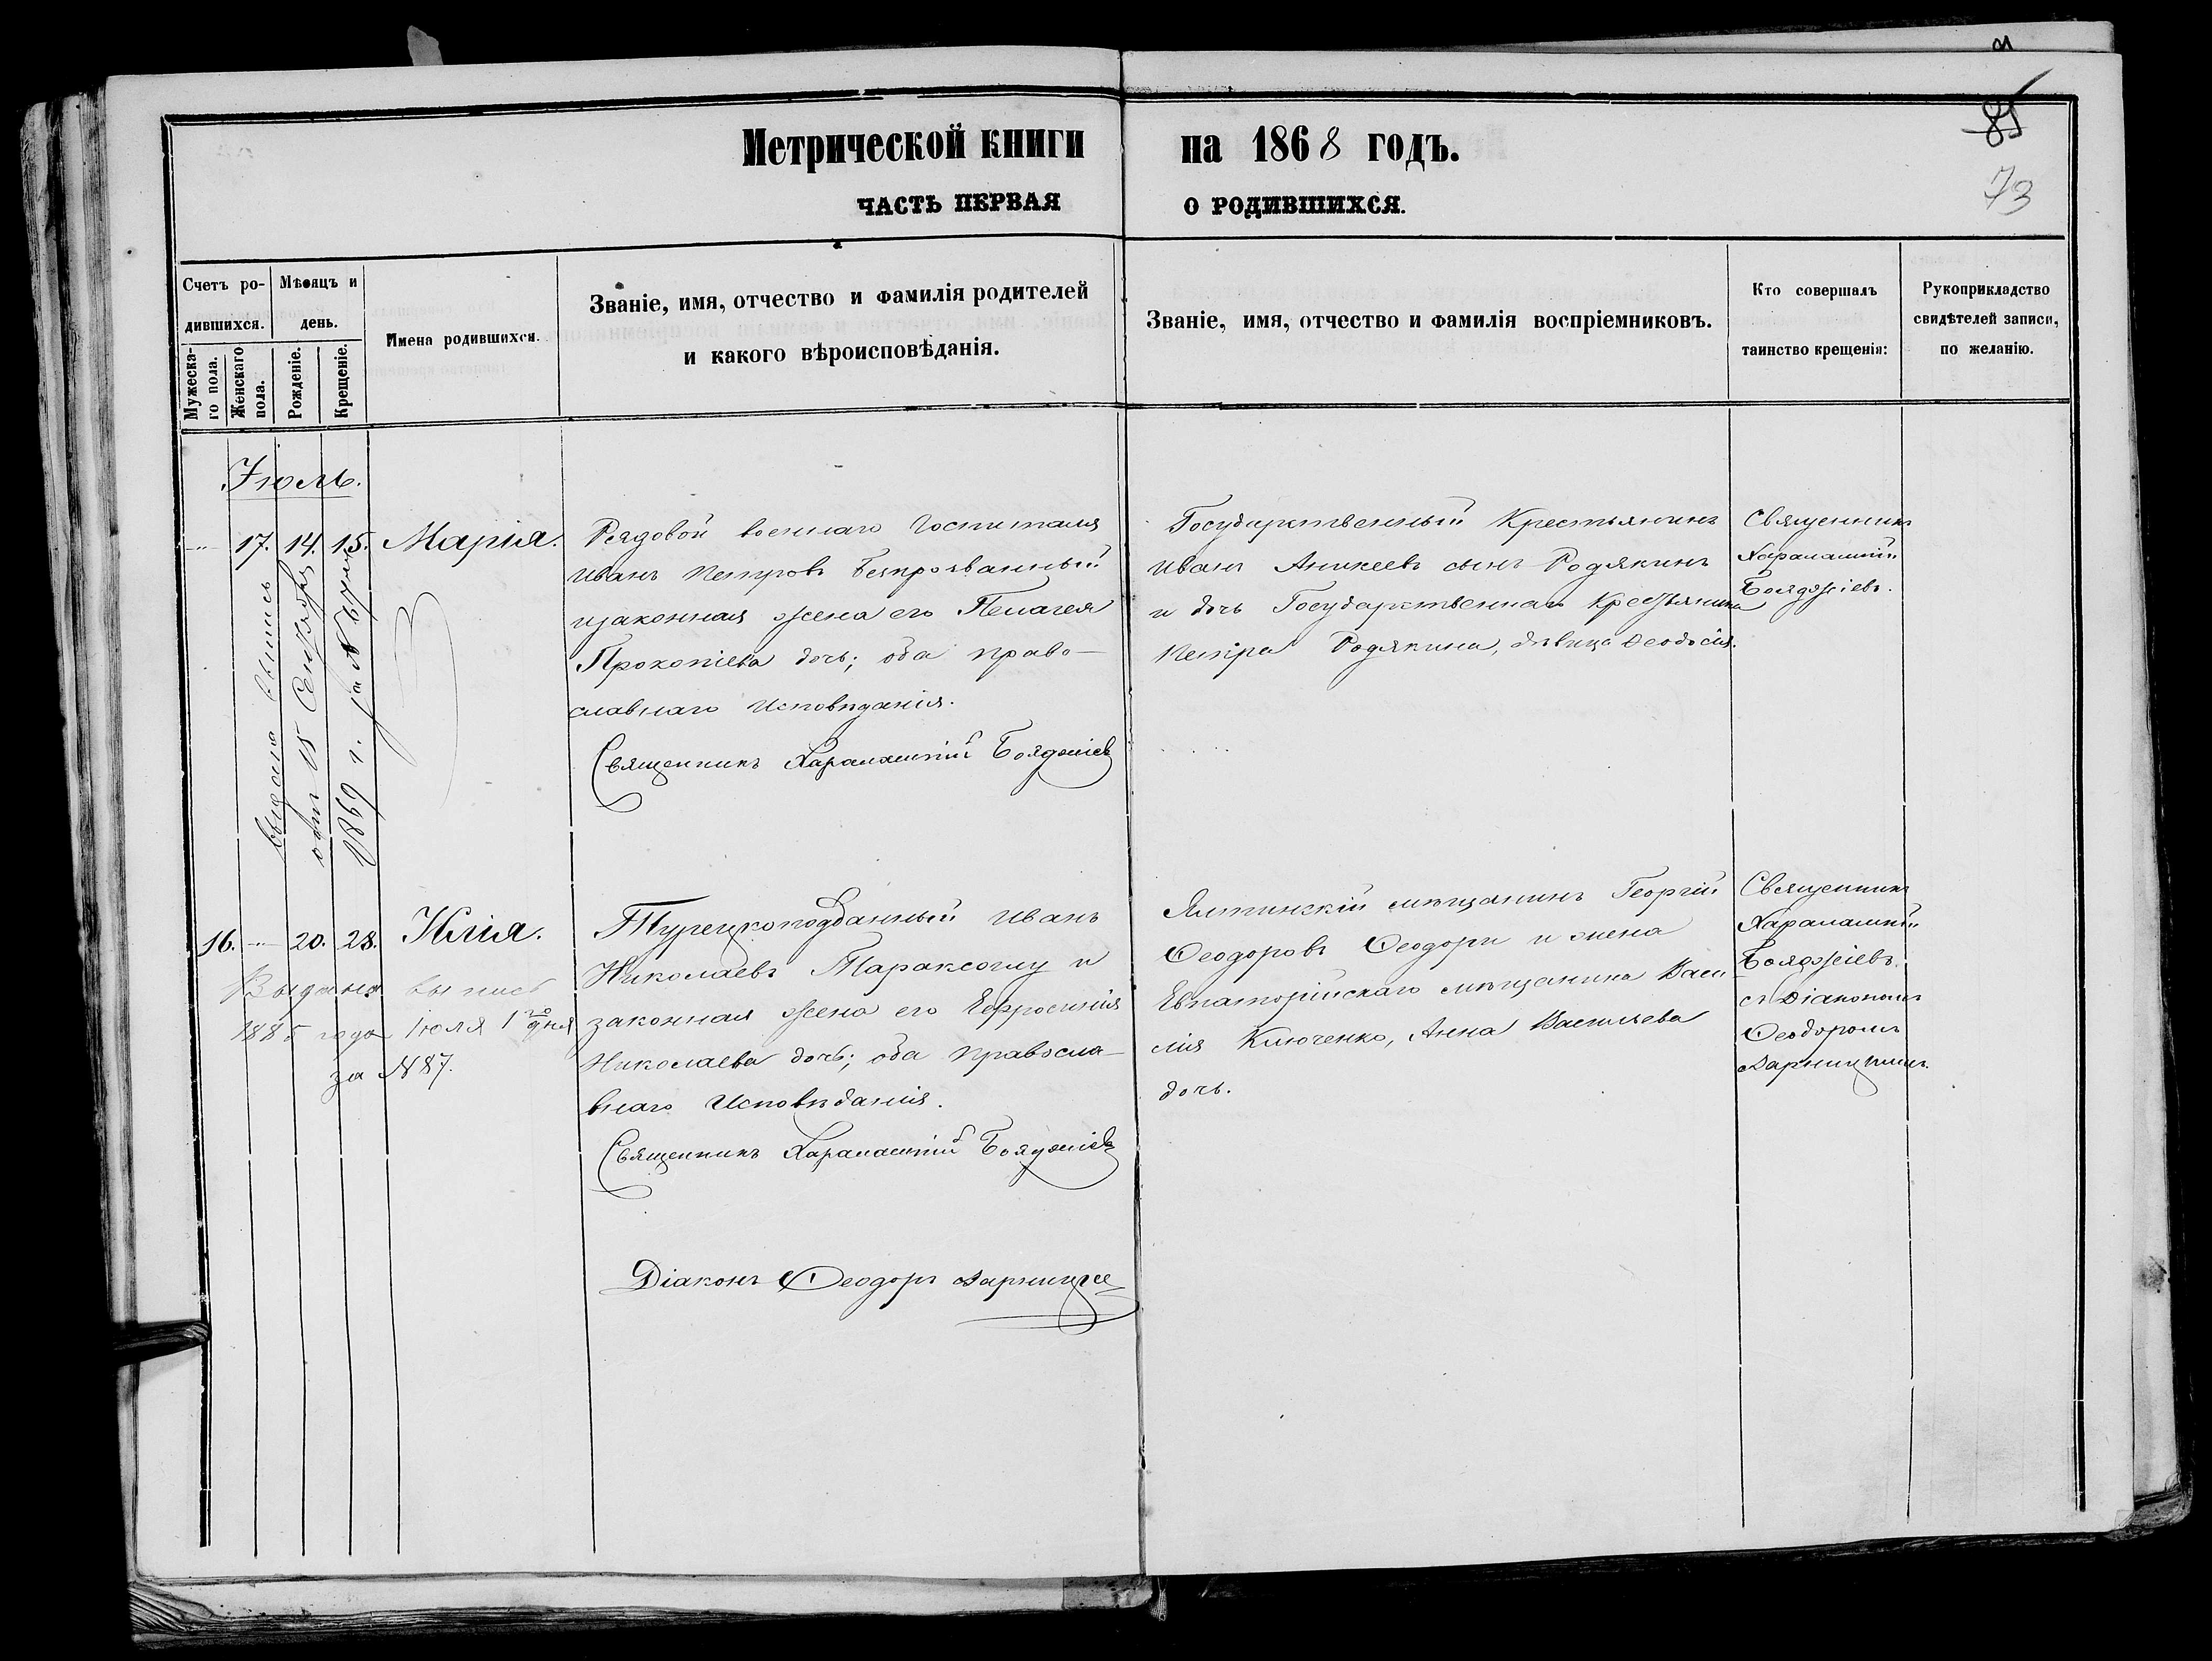 85
73
Метрической книги на 1868 годъ.
ЧАСТЬ ПЕРВАЯ О РОДИВШИХСЯ.
Счетъ ро-
дившихся.
Мужеска-
го пола.
Женскаго
пола.
Мѣсяцъ и
день.
Рожденіе.
Крещеніе.
Имена родившихся.
Званіе, имя, отчество и фамилія родителей
и какого вѣроисповѣданія.
Званіе, имя, отчество и фамилія воспріемниковъ.
Кто совершалъ
таинство крещенія:
Рукоприкладство
свидѣтелей записи,
по желанію.
Іюль.
17. 14. 15. Марія.
Рядовой военнаго Госпиталя
Иванъ Петровъ Безпрозванный
и законная жена его Пелагея
Прокопіева дочь; оба право-
славнаго Исповѣданія.
Священникъ Харалампій Бояджіевъ
Государственный Крестьянинъ
Иванъ Аникеевъ сынъ Родякинъ
и дочь Государственнаго Крестьянина
Петра Родякина, дѣвица Ѳеодосія.
Священникъ
Харалампій
Бояджіевъ.
Выдана выпись
отъ 15 Сентября
1869 г. за №
16. 20. 28. Илія.
Выдана выпись
1885 года Іюля 1го дня
за №87.
Турецкоподданный Иванъ
Николаевъ Тараксоглу и
законная жена его Ефросинія
Николаева дочь; оба правосла-
внаго Исповѣданія.
Священникъ Харалампій Бояджіевъ
Діаконъ Ѳеодоръ
Ялтинскій мѣщанинъ Георгій
Ѳеодоровъ Ѳеодори и жена
Евпаторійскаго мѣщанина Васи-
лія Ключенко, Анна Васильева
дочь.
Священникъ
Харалампій
Бояджіевъ.
съ Діакономъ
Ѳеодоромъ